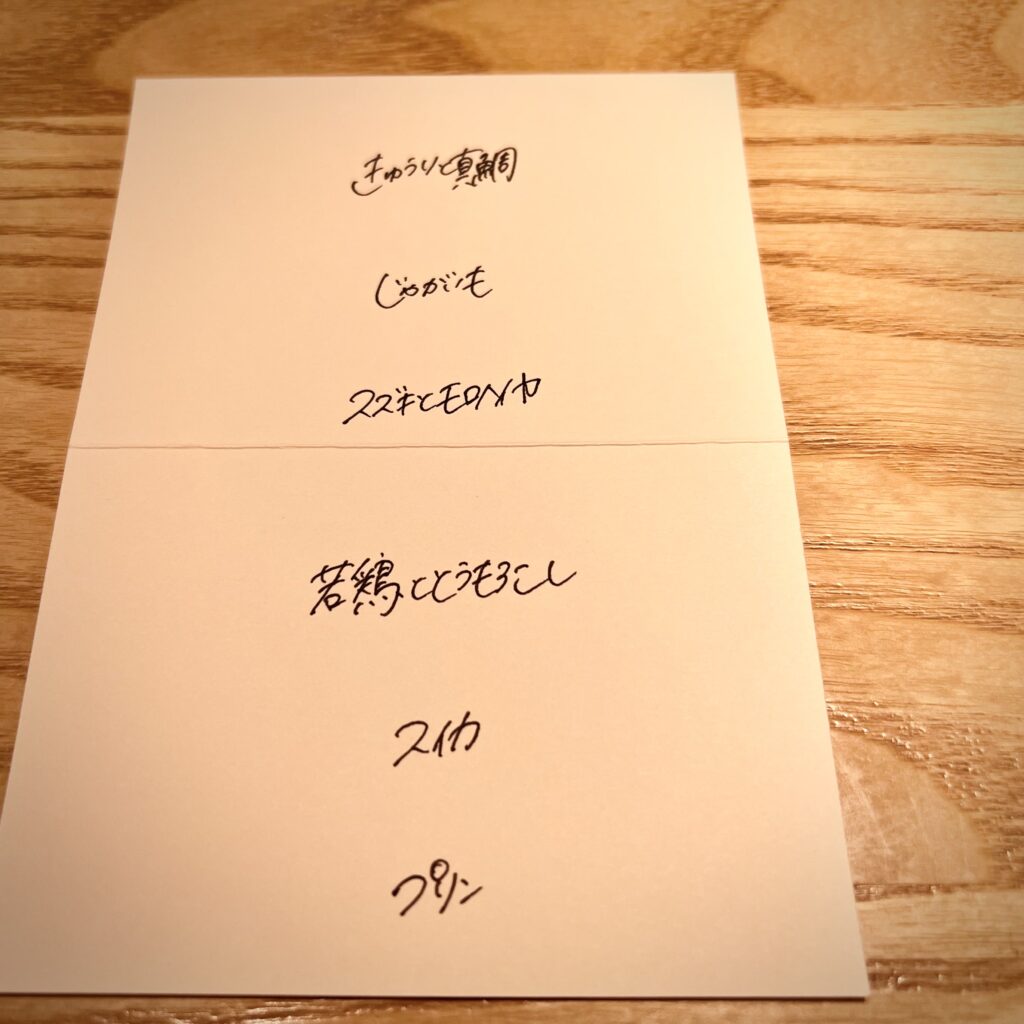 きゅうりと真鯛
じゃがいも
スズキとモロヘイヤ
若鶏ととうもろこし
スイカ
プリン